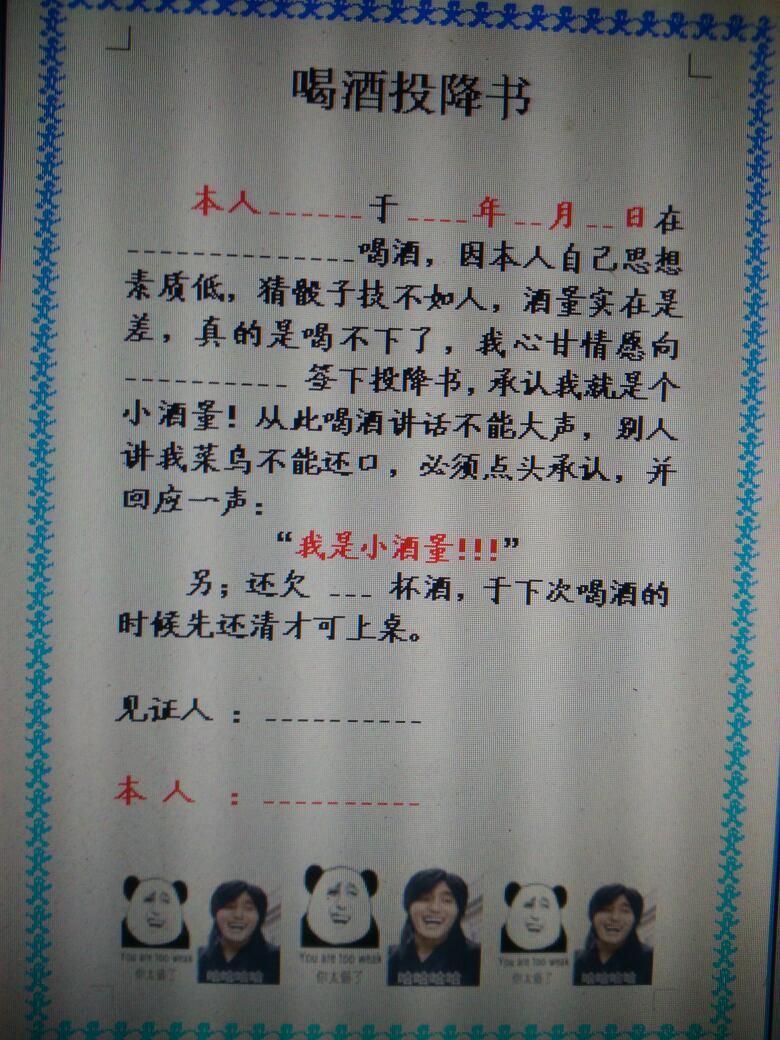 喝酒投降书
本人_______于____年__月__日在
_______________喝酒，因本人自己思想
素质低，猜骰子技不如人，酒量实在是
差，真的是喝不下了，我心甘情愿向
__________ 签下投降书，承认我就是个
小酒量！从此喝酒讲话不能大声，别人
讲我菜鸟不能还口，必须点头承认，并
回应一声：
“我是小酒量!!!”
另；还欠 ___ 杯酒，于下次喝酒的
时候先还清才可上桌。
见证人 ：__________
本 人 ：__________
You are too weak You are too weak You are too weak
哈哈哈哈 哈哈哈哈 哈哈哈哈